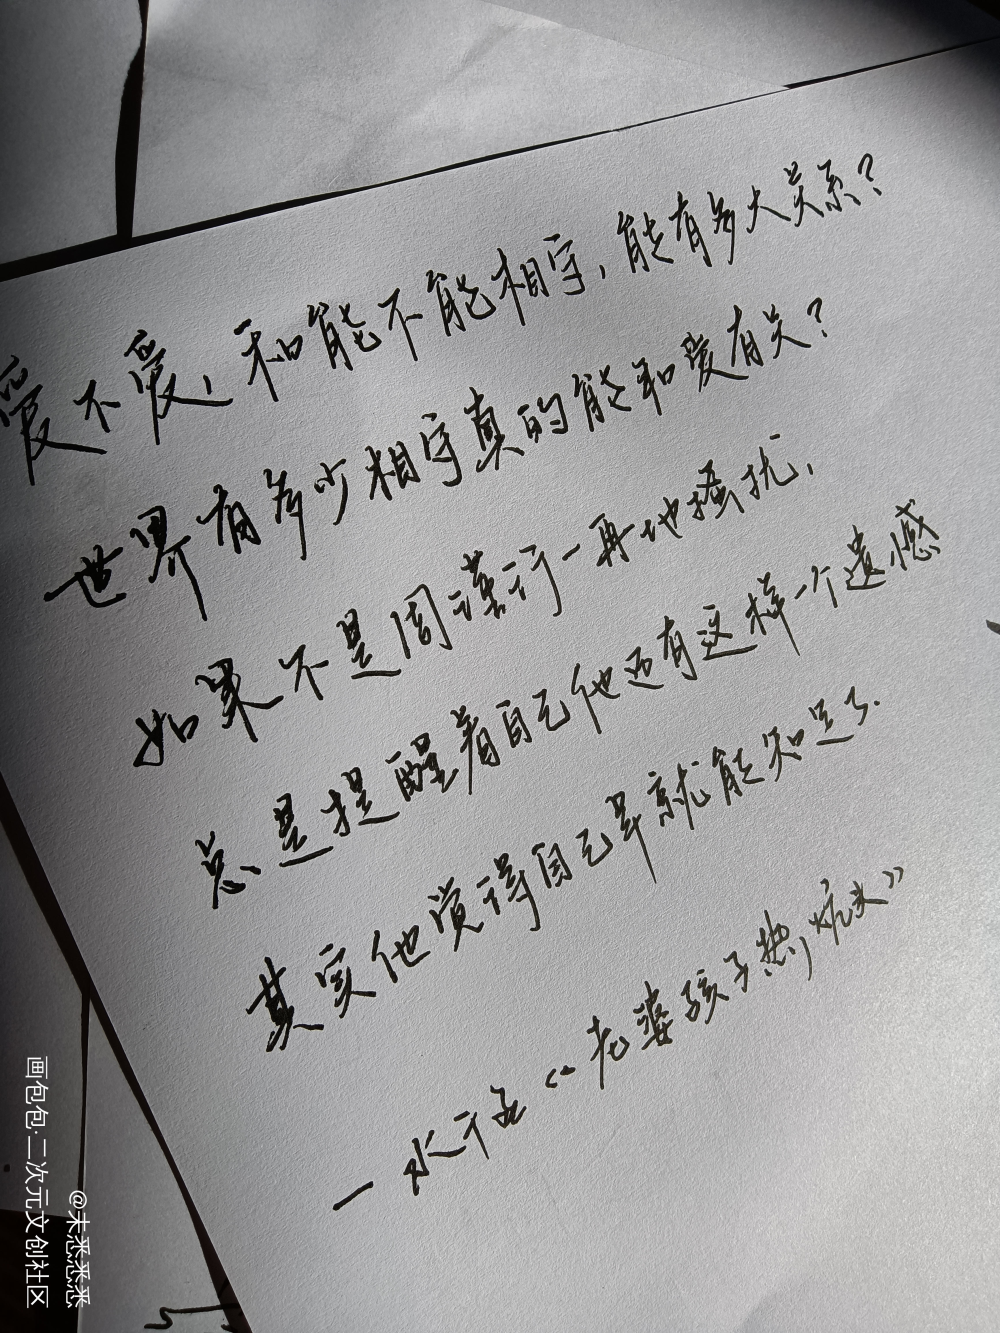 爱不爱，和能不能相守，能有多大关系？
世界有多少相守真的能和爱有关？
如果不是周谨行一再地搔扰，
总是提醒着自己他还有这样一个遗憾
其实他觉得自己早就能知足了.
—水千丞《老婆孩子热炕头》
画包包·二次元文创社区
@未悉悉悉